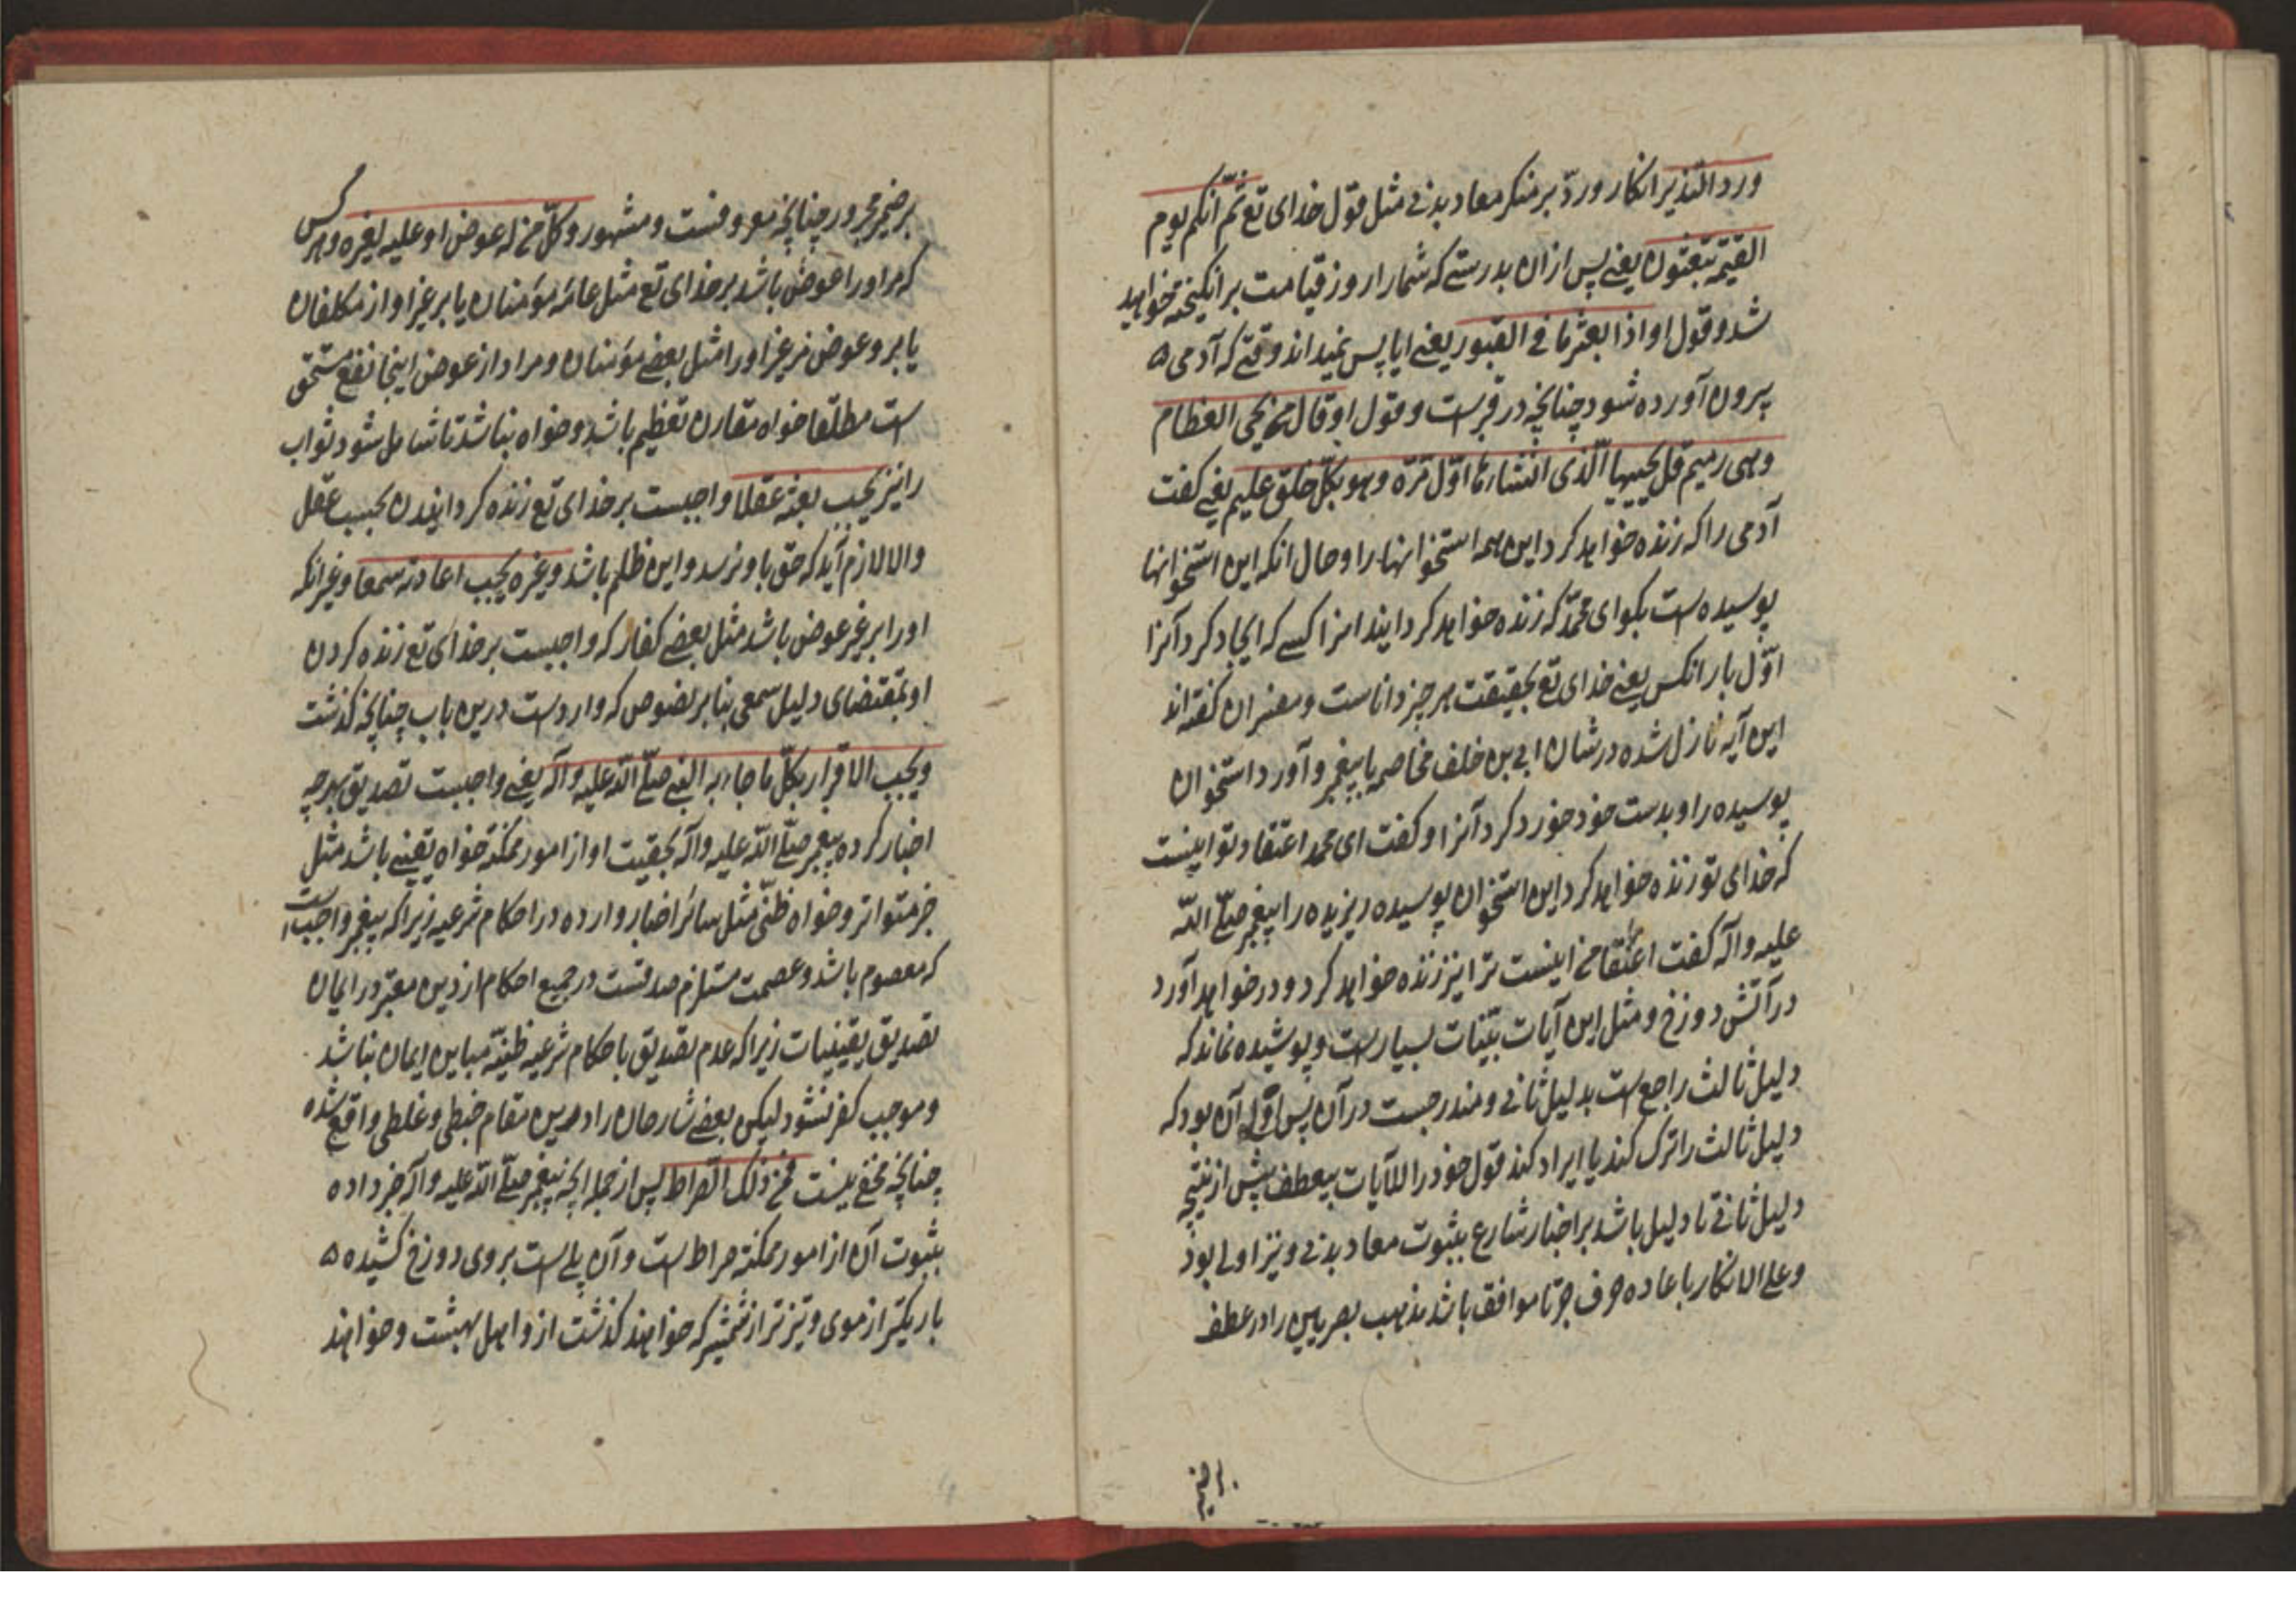 ورد النذیر انکار و ردّ بر منکر معاد بدنی مثل قول خدای تع ثمّ انکم یوم
القیمة تبعثون یعنی پس ازان بدرستی که شما را روز قیامت برانکیخته خواهید
شد و قول او اذا بعثر ما فی القبور یعنی ایا پس نمیداند وقتی که آدمی
بیرون آورده شود چنانچه در قبرست و قول او قال من یحی العظام
وهی رمیم قل یحییها الّذی انشاءها اوّل مرّة وهو بکلّ خلق علیم یعنی کفت
آدمی را که زنده خواهد کرد این همه استخوانها را و حال انکه این استخوانها
پوسیده است بکو ای محمّد که زنده خواهد کردانید انرا کسی که ایجاد کرد آنرا
اوّل بار انکس یعنی خدای تع بحقیقت هر چیز داناست و مفسران کفته اند
این آیه نازل شده در شان ابی بن خلف مخاصمه با پیغمبر و آورد استخوان
پوسیده را و بدست خود خورد کرد آنرا و کفت ای محمد اعتقاد تو اینست
که خدای تو زنده خواهد کرد این استخوان پوسیده ریزیده را پیغمبر صلّی اللّه
علیه و آله کفت اعتقاد من اینست ترا نیز زنده خواهد کرد و در خواهد آورد
در آتش دوزخ و مثل این آیات بیّنات بسیار است و پوشیده نماند که
دلیل ثالث راجع است بدلیل ثانی و مندرجست در آن پس اولی آن بود که
دلیل ثالث را ترک کند یا ایراد کند قول خود را للآیات بیعطف پیش از نتیجه
دلیل ثانی تا دلیل باشد بر اخبار شارع بثبوت معاد بدنی و نیز اولی بود
و علی الانکار باعاده حرف جرّ تا موافق باشد بمذهب بصریین را در عطف
بر ضمیر
بر ضمیر مجرور چنانچه معروفست و مشهور و کلّ من له عوض او علیه لغیره و هر کس
که مر او را عوض باشد بر خدای تع مثل عامّه مؤمنان یا بر غیر او از مکلفان
یا برو عوض مر غیر او را مثل بعضی مؤمنان و مراد از عوض اینجا نفع مستحق
است مطلقا خواه مقارن تعظیم باشد و خواه نباشد تا شامل شود ثواب
را نیز یجب بعثه عقلا واجبست بر خدای تع زنده کردانیدن بحسب عقل
و الا لازم آید که حق باو نرسد و این ظلم باشد و غیره یجب اعادته سمعا و غیر انکه
او را بر غیر عوض باشد مثل بعضی کفار که واجبست بر خدای تع زنده کردن
او بمقتضای دلیل سمعی بنا بر نصوص که وارد است درین باب چنانچه کذشت
و یجب الاقرار بکلّ ما جاء به النبی صلّی اللّه علیه و آله یعنی واجبست تصدیق بهرچه
اخبار کرده پیغمبر صلّی اللّه علیه و آله بحقیت او از امور ممکنه خواه یقینی باشد مثل
خبر متواتر و خواه ظنّی مثل سائر اخبار وارده در احکام شرعیه زیرا که پیغمبر واجب است
که معصوم باشد و عصمت مستلزم صدقست در جمیع احکام از دین معتبر در ایمان
تصدیق یقینیات زیرا که عدم تصدیق باحکام شرعیه ظنیّه مباین ایمان نباشد
و موجب کفر نشود لیکن بعضی شارحان را درین مقام خبطی و غلطی واقع شده
چنانچه مخفی نیست فمن ذلک الصّراط پس از جمله انچه پیغمبر صلّی اللّه علیه و آله خبر داده
بثبوت آن از امور ممکنه صراط است و آن پلی است بر روی دوزخ کشیده
باریکتر از موی و تیزتر از شمشیر که خواهند کذشت ازو اهل بهشت و خواهند